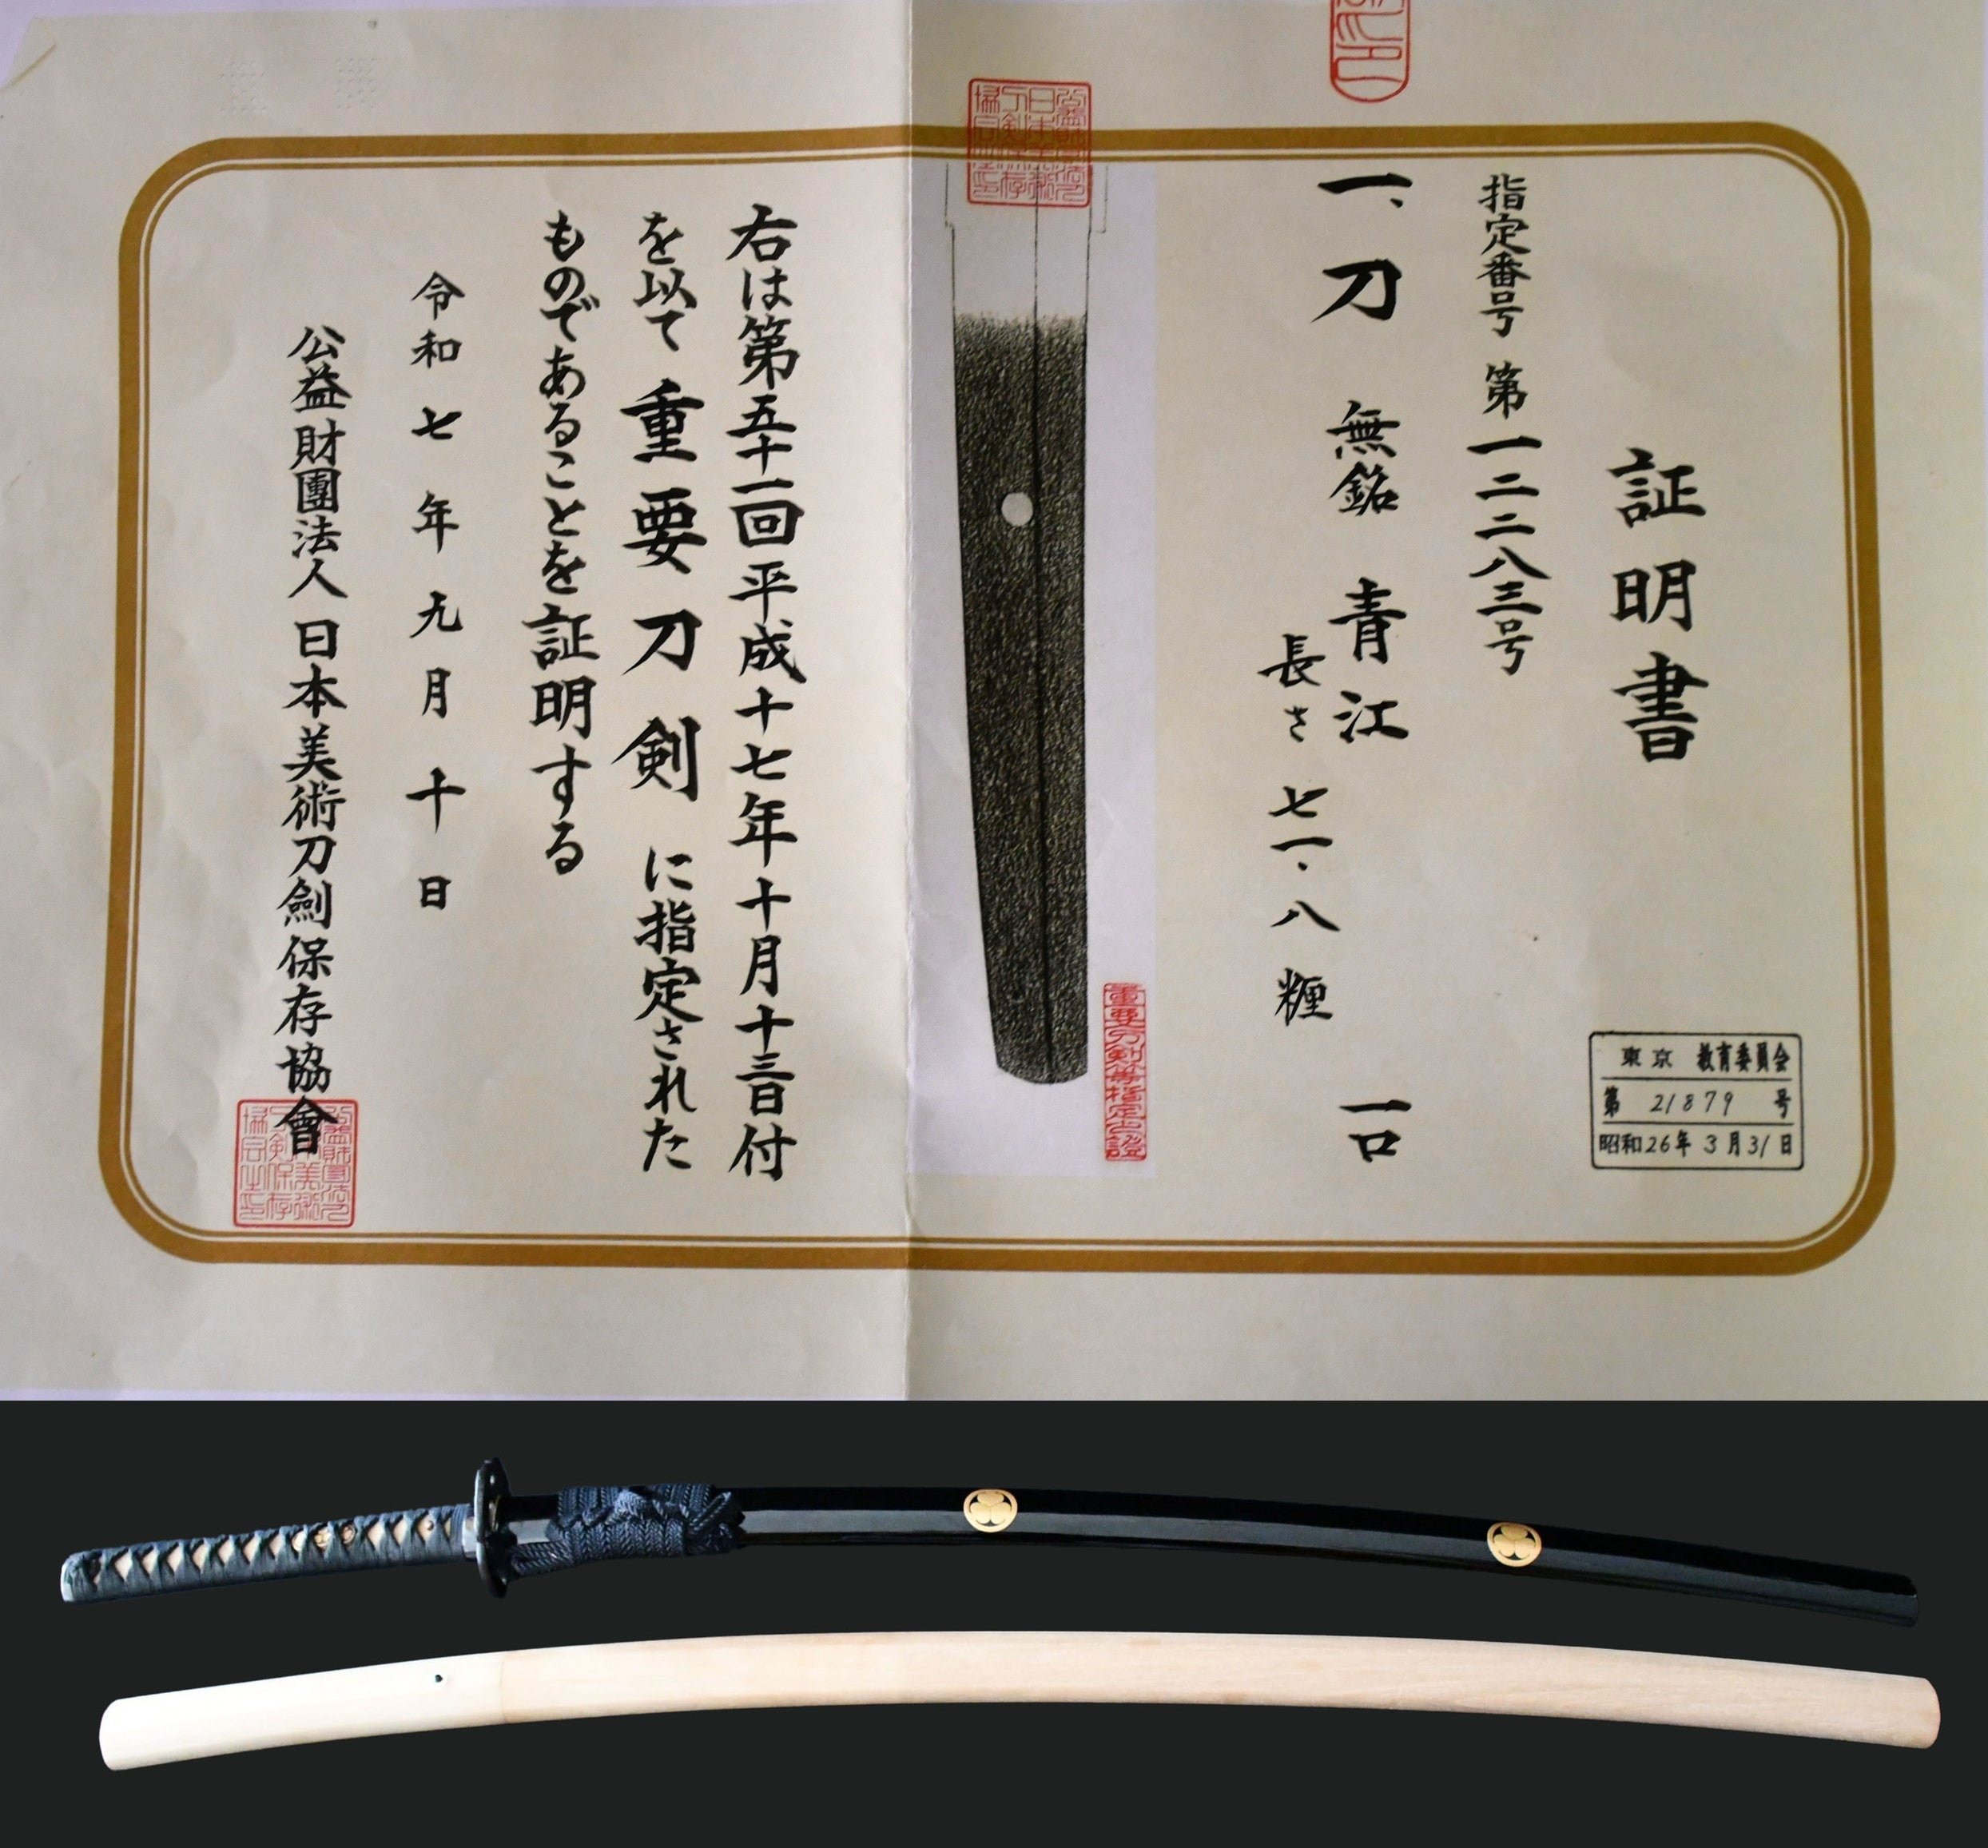 証明書
指定番号 第一二二八三号
一、刀 無銘 青江 一口
長さ 七一・八 糎
東京 教育委員会
第 21879 号
昭和26年3月31日
重要刀剣等指定之證
右は第五十一回平成十七年十月十三日付
を以て重要刀剣に指定された
ものであることを証明する
令和七年九月十日
公益財團法人日本美術刀劍保存協會